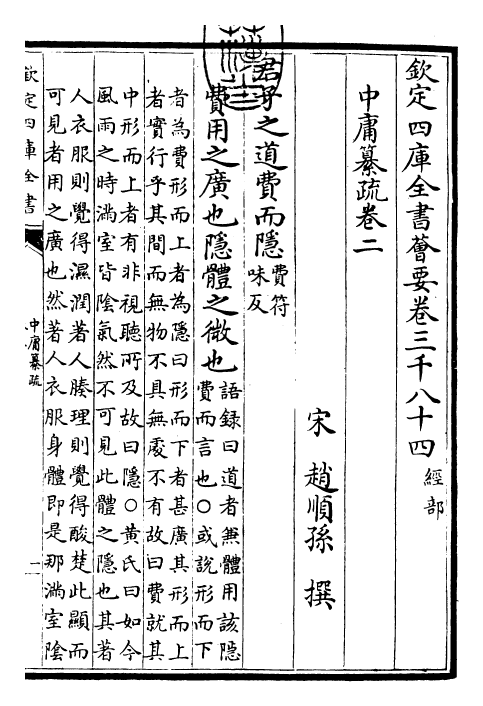 欽定四庫全書薈要卷三千八十四 經部
中庸纂疏卷二
宋 趙順孫 撰
君子之道費而隱
費符
味反
費用之廣也隱體之微也
語録曰道者兼體用該隱
費而言也○或說形而下
者為費形而上者為隱曰形而下者甚廣其形而上
者實行乎其間而無物不具無處不有故曰費就其
中形而上者有非視聽所及故曰隱○黄氏曰如今
風雨之時滿室皆陰氣然不可見此體之隱也其著
人衣服則覺得濕潤著人腠理則覺得酸楚此顯而
可見者用之廣也然著人衣服身體即是那滿室陰
欽定四庫全書
中庸纂疏
一